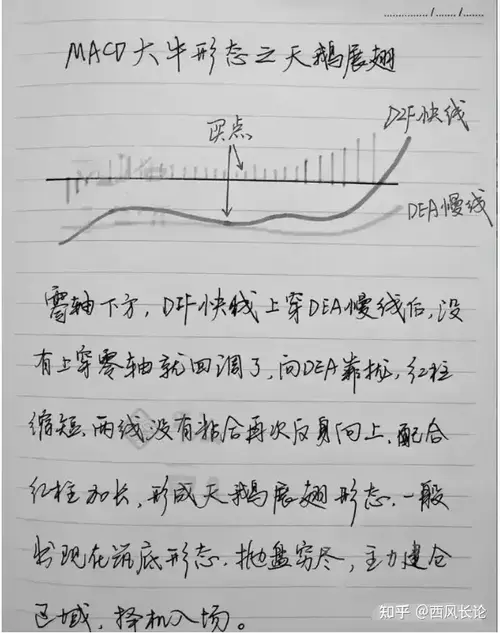 MACD大牛形态之天鹅展翅
买点
DIF快线
DEA慢线
零轴下方,DIF快线上穿DEA慢线后,没
有上穿零轴就回调了,向DEA靠拢,红柱
缩短,两线没有粘合再次反身向上,配合
红柱加长,形成天鹅展翅形态,一般
出现在筑底形态,抛盘穷尽,主力建仓
区域,择机入场。
知乎 @西风长论